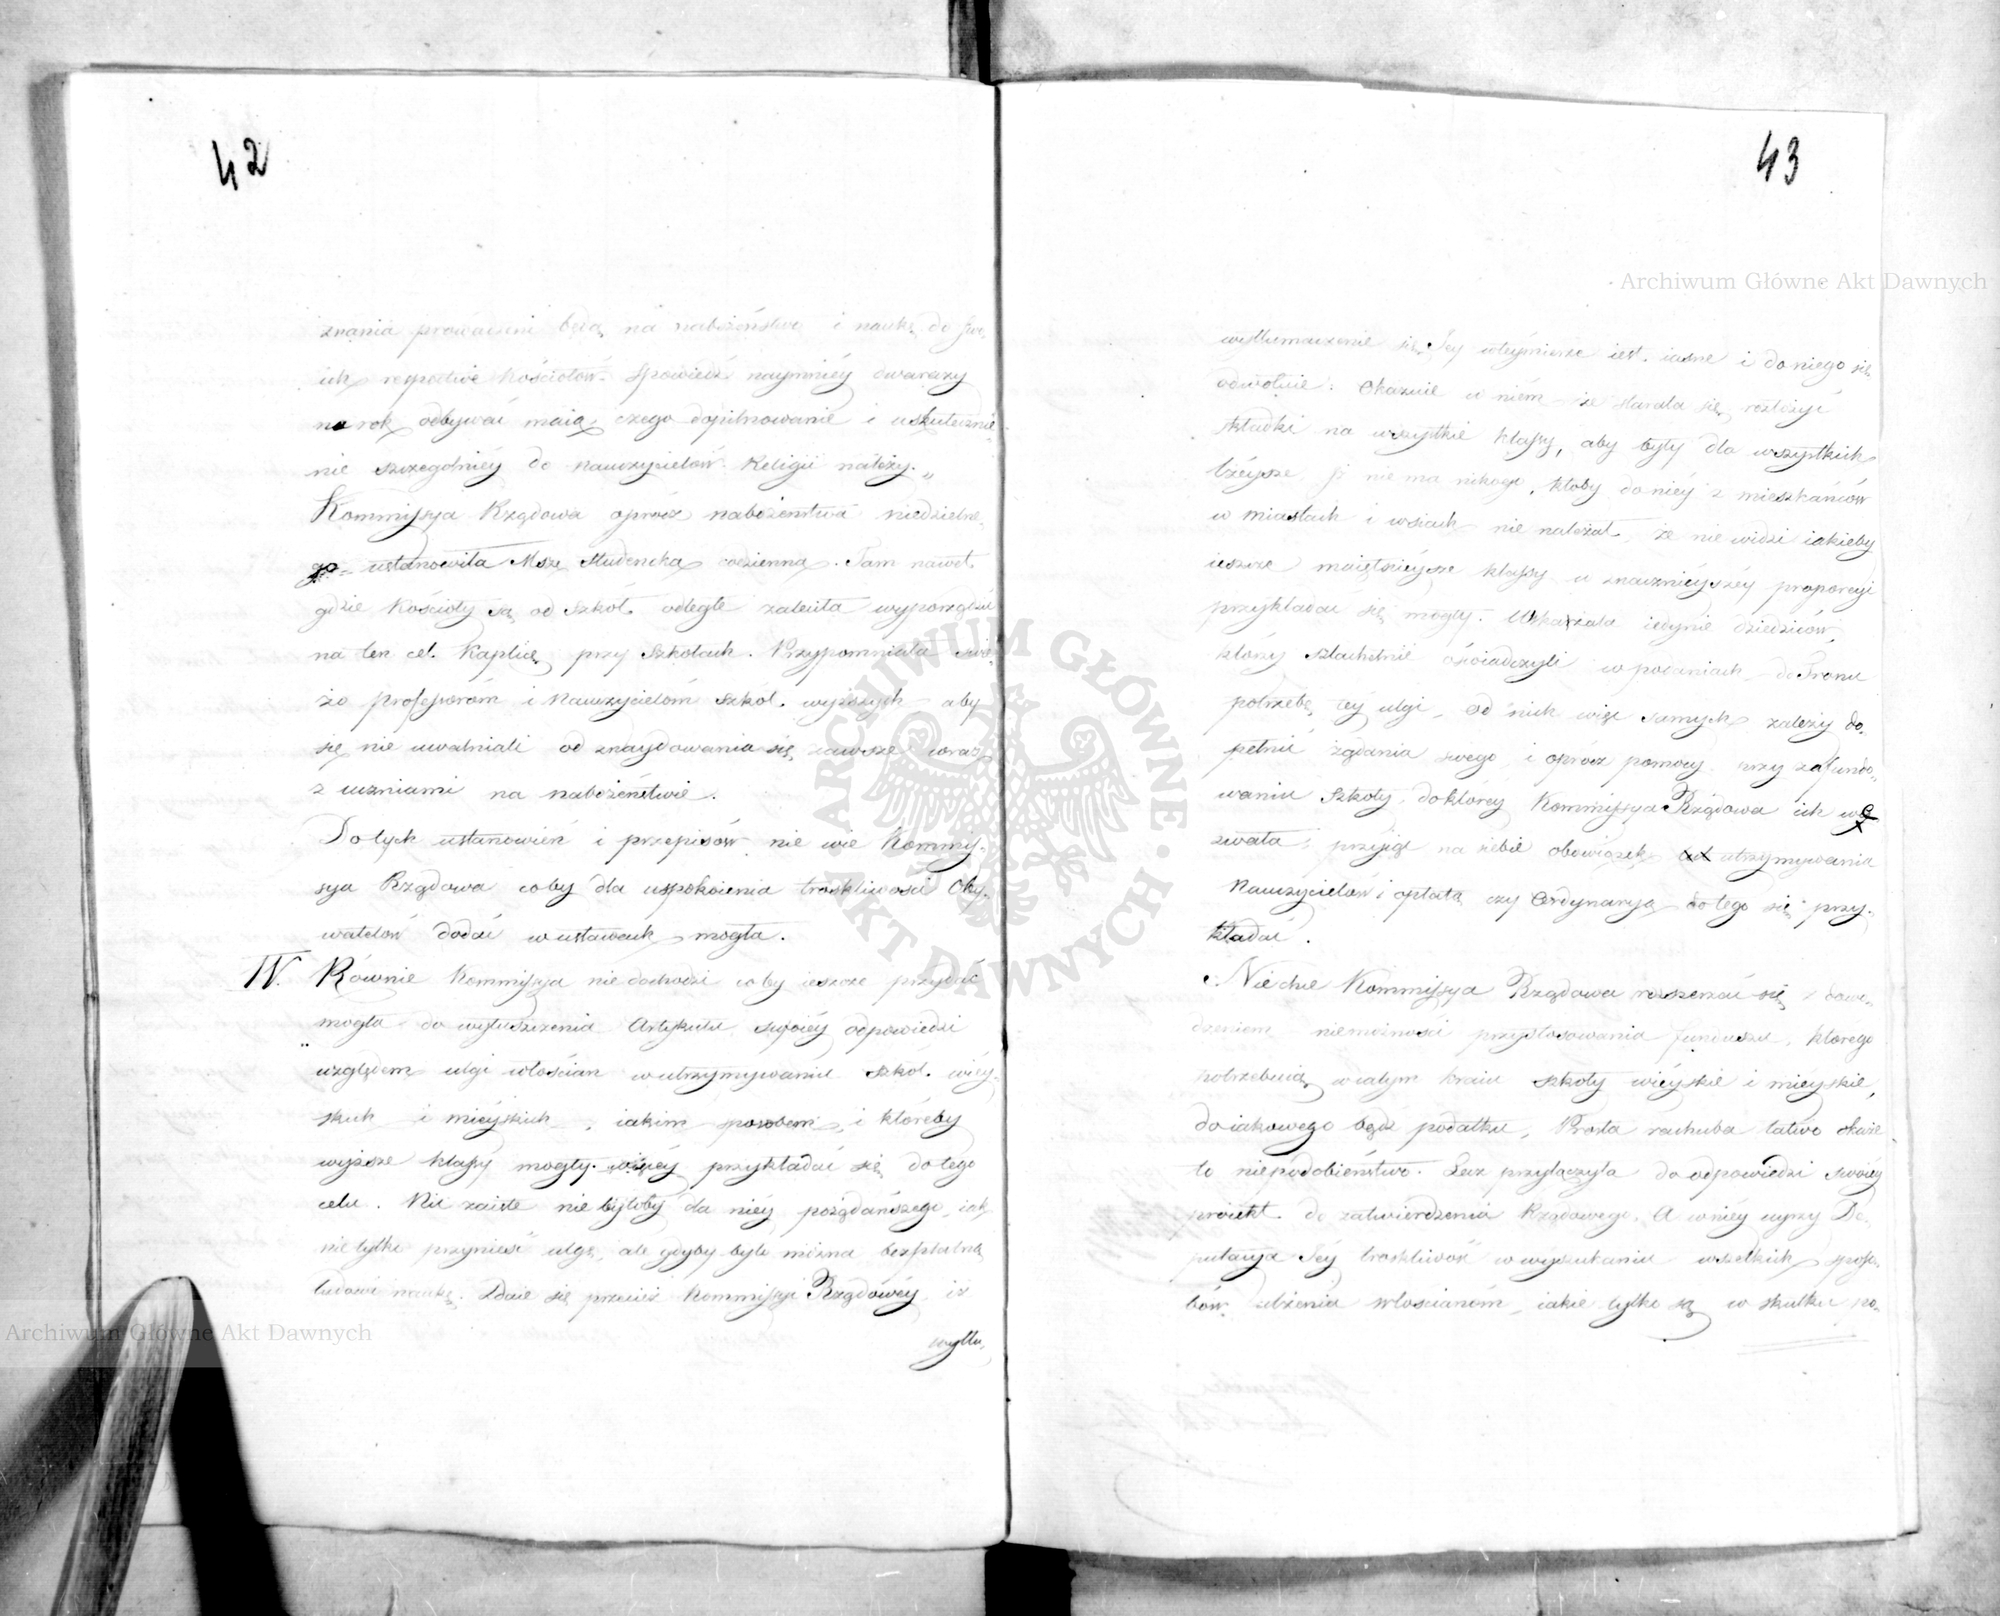 42
znania prowadzeni będą na nabożeństwo i naukę do swo-
ich respective kościołów. Spowiedź naymniéy dwarazy
na rok odbywać maią, czego dopilnowanie i uskutecznie-
nie szczególniéy do Nauczycielów Religii należy.„
Kommissya Rządowa oprócz nabożenstwa niedzielne-
go ustanowiła Mszę Studencką codzienną. Tam nawet
gdzie Kościoły są od szkół odległe zaleciła wyporządzić
na ten cel Kaplicę przy Szkołach. Przypomniała świe-
żo professorom i Nauczycielom szkół wyższych aby
się nie uwalniali od znaydowania się zawsze wraz
z uczniami na nabożeństwie.
Do tych ustanowień i przepisów nie wie Kommis-
sya Rządowa coby dla uspokoienia troskliwości Oby-
watelów dodać w ustawach mogła.
IV. Równie Kommissya nie dochodzi coby ieszcze przydać
mogła do wyłuszczenia Artykułu swoiéy odpowiedzi
względem ulgi włościan w utrzymywaniu szkół wiéy-
skich i miéyskich, iakim sposobem i któreby
wyższe klassy mogły więcéy przykładać się do tego
celu. Nic zaiste nie byłoby dla niéy pożądańszego, iak
nie tylko przynieść ulgę, ale gdyby było można bezpłatną
ludowi naukę. Zdaie się przecież Kommissyi Rządowéy, iż
wytłu-
43
wytłumaczenie się Jey w téymierze iest iasne i do niego się
odwołuie: Okazuie w niém że starała się rozłożyć
składki na wszystkie klassy, aby były dla wszystkich
lżéysze iż nie ma nikogo, ktoby do niéy z mieszkańców
w miastach i wsiach nie należał, że nie widzi iakieby
ieszcze maiętniéysze klassy w znaczniéyszéy proporcyi
przykładać się mogły. Wskazała iedynie dziedziców,
którzy szlachetnie oświadczyli w podaniach do Tronu
potrzebę téy ulgi, od nich więc samych zależy do-
pełnić żądania swego i oprócz pomocy przy zafundo-
waniu szkoły, do któréy Kommissya Rządowa ich we-
zwała, przyiąć na siebie obowiązek utrzymywania
Nauczycielów i opłatą czy Ordynaryą do tego się przy-
kładać.
Niechce Kommissya Rządowa rozszerzać się dowo-
dzeniem niemożności przystosowania funduszu, którego
potrzebuią w całym kraiu szkoły wiéyskie i miéyskie,
do iakowego bądź podatku. Prosta rachuba łatwo okaże
to niepodobieństwo. Lecz przyłączyła do odpowiedzi swoiéy
proiekt do zatwierdzenia Rządowego. A w niéy uyrzy De-
putacya Jéy troskliwość w wyszukaniu wszelkich sposo-
bów ulżenia włościanom, iakie tylko są w skutku po-